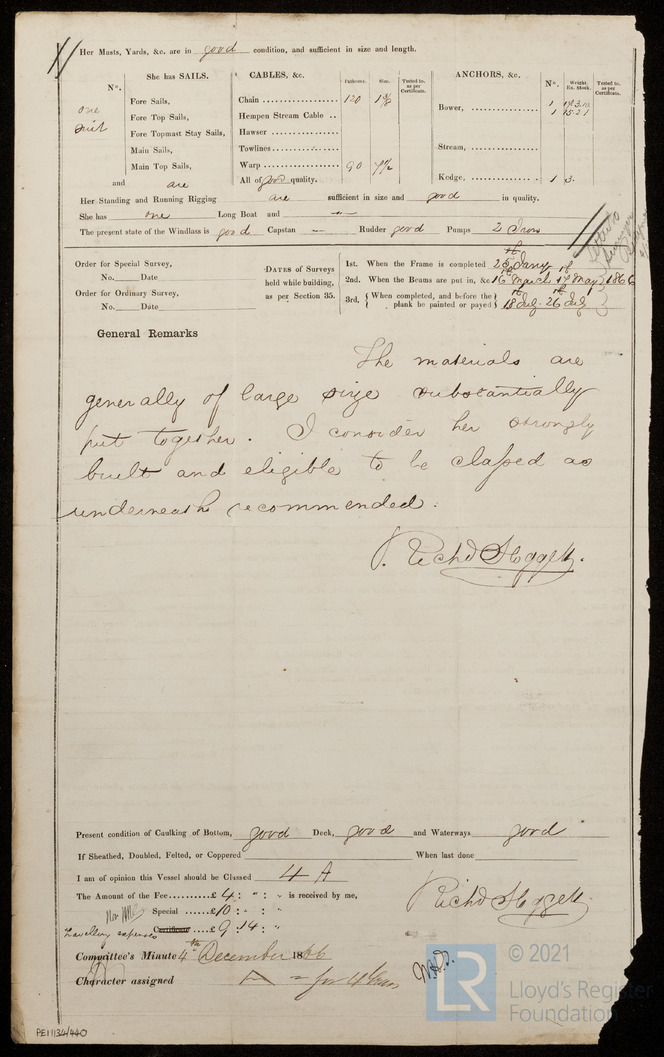 Her Masts, Yards, &c. are in good condition, and sufficient in size and length.
She has SAILS.
CABLES, &c.
Fathoms.
Size.
Tested to, as per Certificate.
ANCHORS, &c.
No.
Weight. Ex. Stock.
Tested to, as per Certificate.
No.
one suit
Fore Sails,
Fore Top Sails,
Fore Topmast Stay Sails,
Main Sails,
Main Top Sails,
and are
Chain 120
Hempen Stream Cable ..
Hawser
Towlines
Warp 90
All of good quality.
Bower, 1
1 15.2.1
Stream,
Kedge, 1 3.
Her Standing and Running Rigging are sufficient in size and good in quality.
She has one Long Boat and
The present state of the Windlass is good Capstan Rudder good Pumps 2 Iron
Order for Special Survey,
No. Date
Order for Ordinary Survey,
No. Date
DATES of Surveys
held while building,
as per Section 35.
1st. When the Frame is completed 25th Jany
2nd. When the Beams are put in, &c 16th March 17th May 1866
3rd. When completed, and before the plank be painted or payed 18th July - 26th July
General Remarks
The materials are
generally of large size substantially
put together. I consider her strongly
built and eligible to be classed as
underneath recommended.
Present condition of Caulking of Bottom, good Deck, good and Waterways good
If Sheathed, Doubled, Felted, or Coppered When last done
I am of opinion this Vessel should be Classed 4 A
The Amount of the Fee £ 4 : " : " is received by me,
Special £ 10 : " : "
Travelling expenses Certificate £ 9 : 14 : "
Committee's Minute 4th December 1866
Character assigned
PE11134/440
LR
© 2021
Lloyd's Register
Foundation